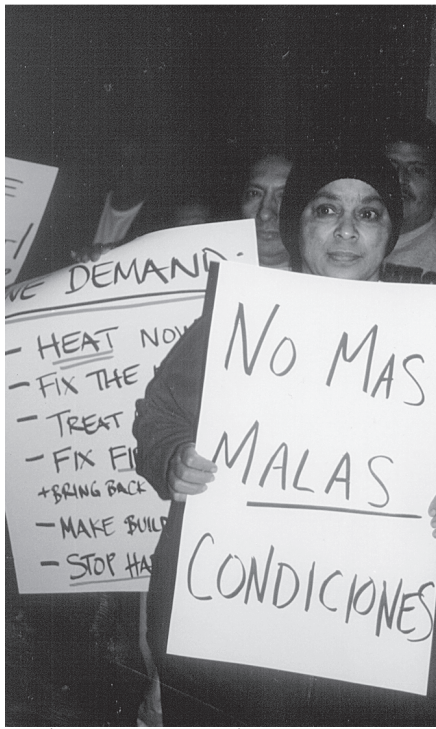 WE DEMAND:
- HEAT NOW
- FIX THE
- TREAT
- FIX
+ BRING BACK
- MAKE
- STOP
NO MAS
MALAS
CONDICIONES